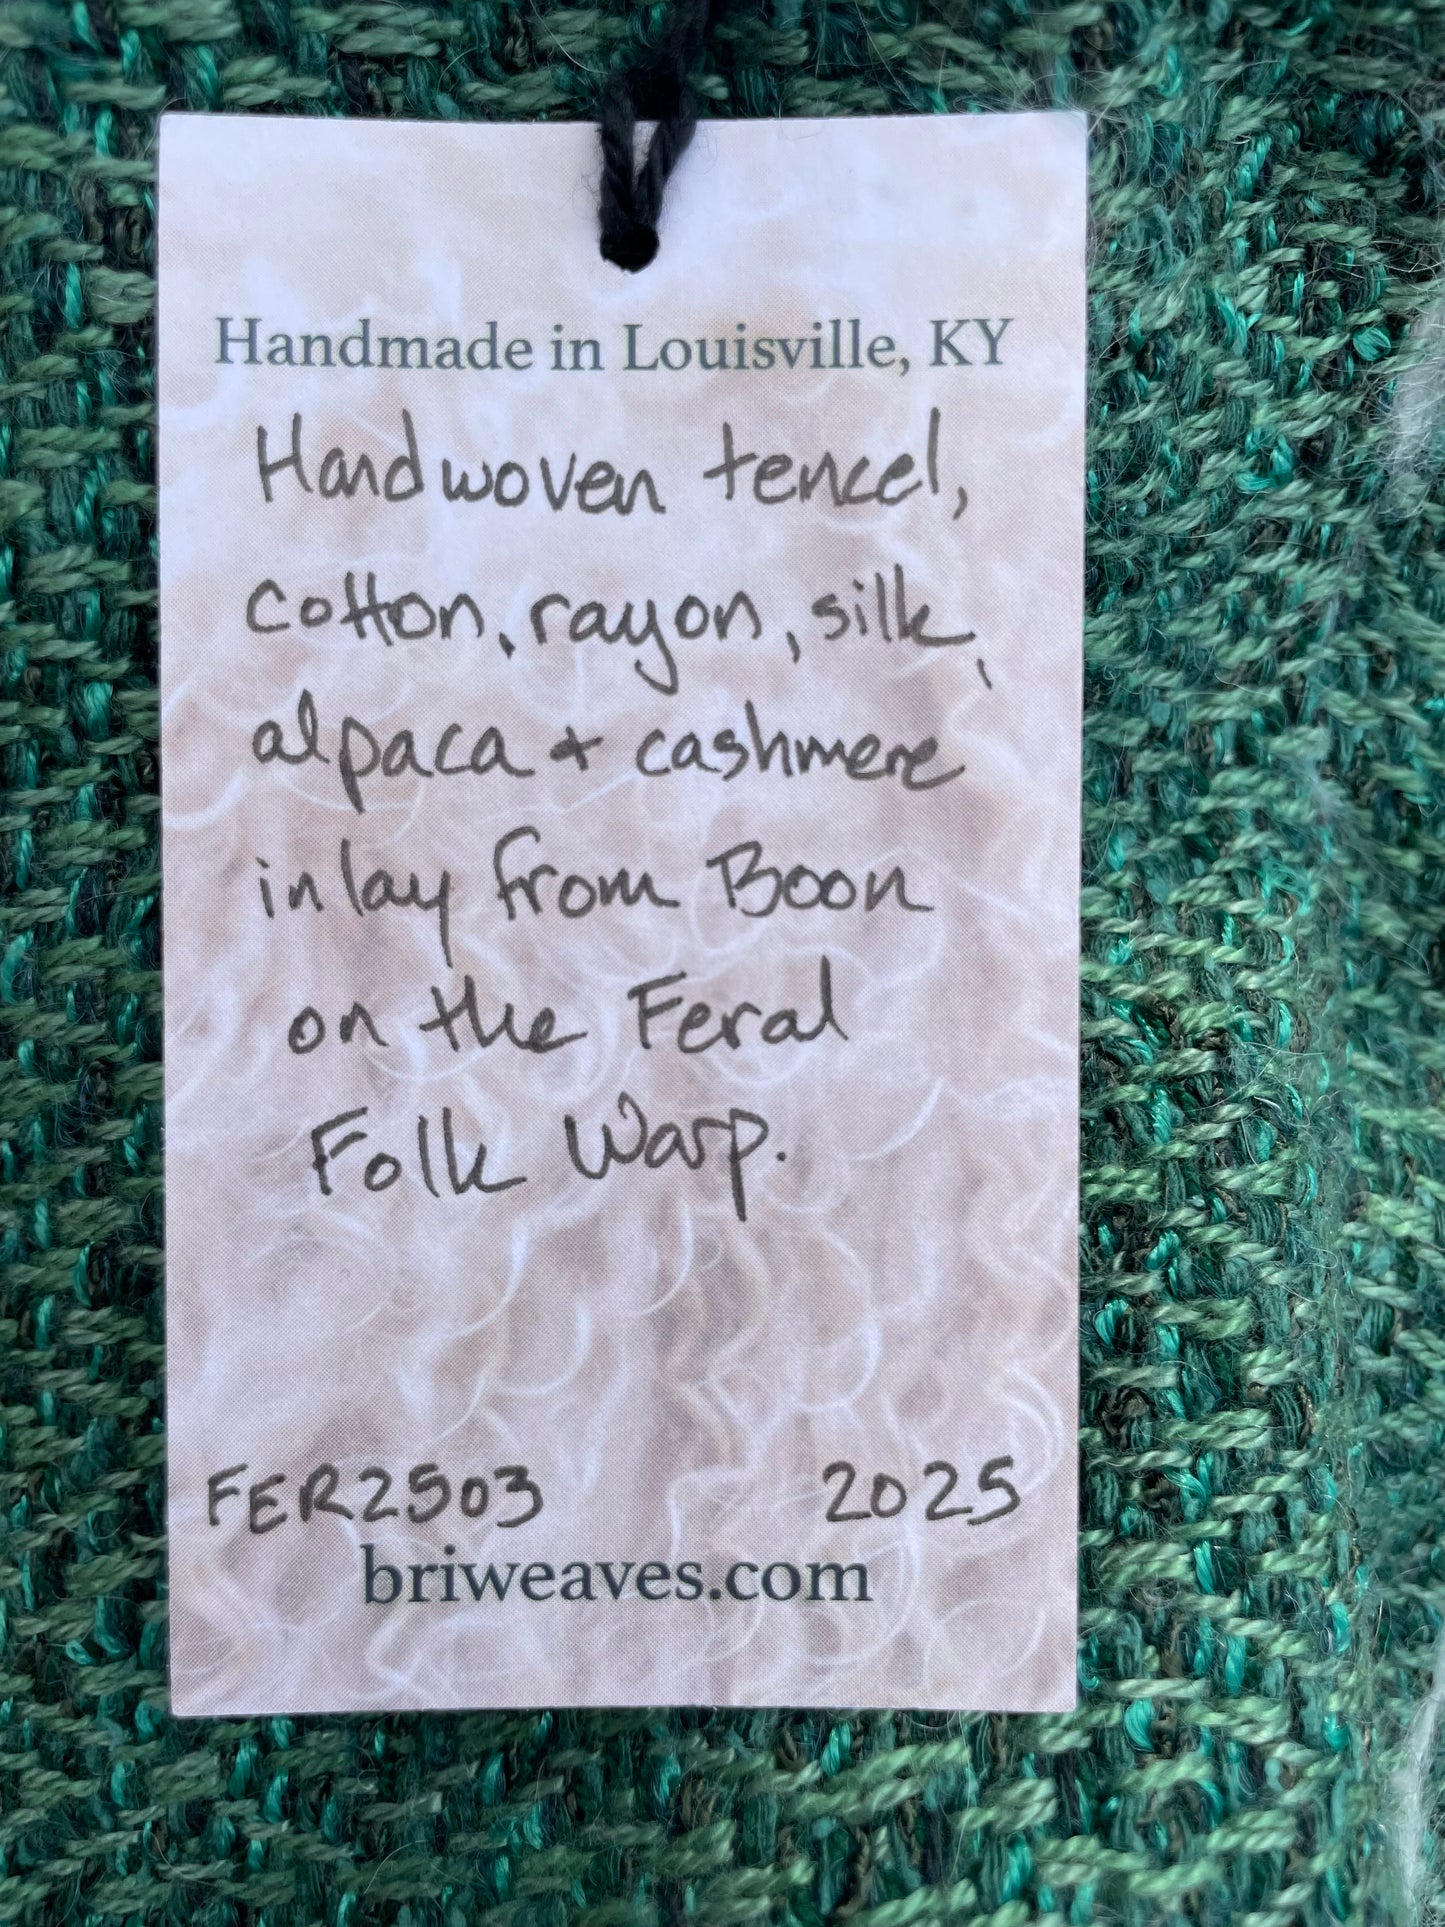 Handmade in Louisville, KY
Handwoven tencel,
cotton, rayon, silk,
alpaca + cashmere
inlay from Boon
on the Feral
Folk Warp.
FER2503 2025
briweaves.com